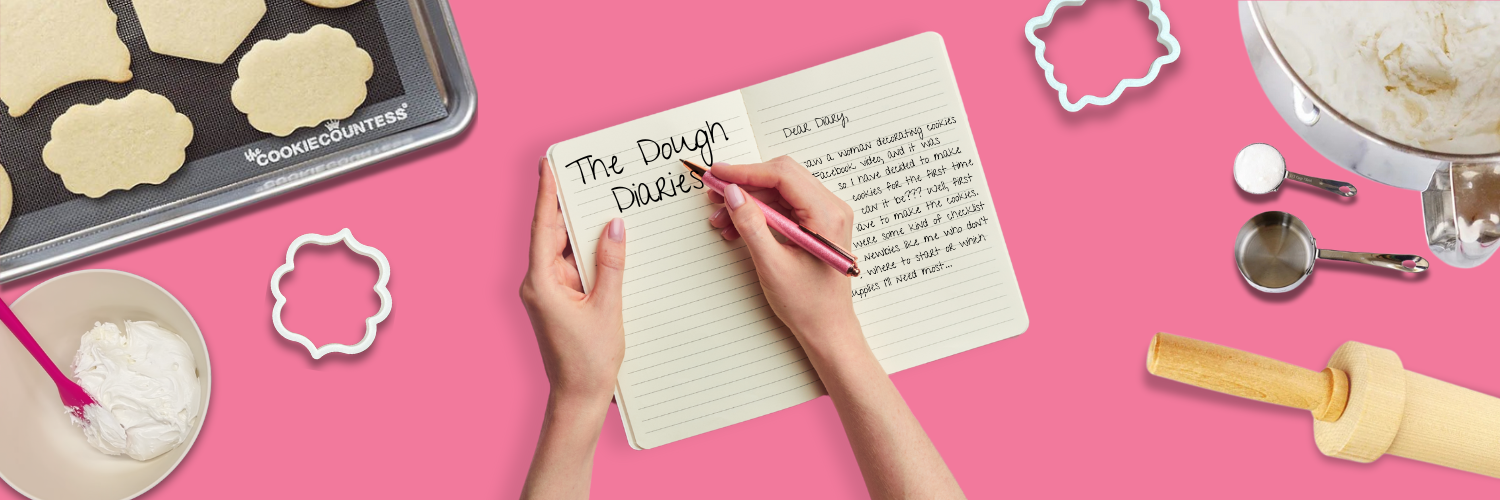 the COOKIECOUNTESS®
The Dough
Diaries
Dear Diary,
saw a woman decorating cookies
Facebook video, and it was
so I have decided to make
cookies for the first time
can it be??? Well, first
have to make the cookies.
were some kind of checklist
newbies like me who don't
where to start or which
supplies I'll need most...